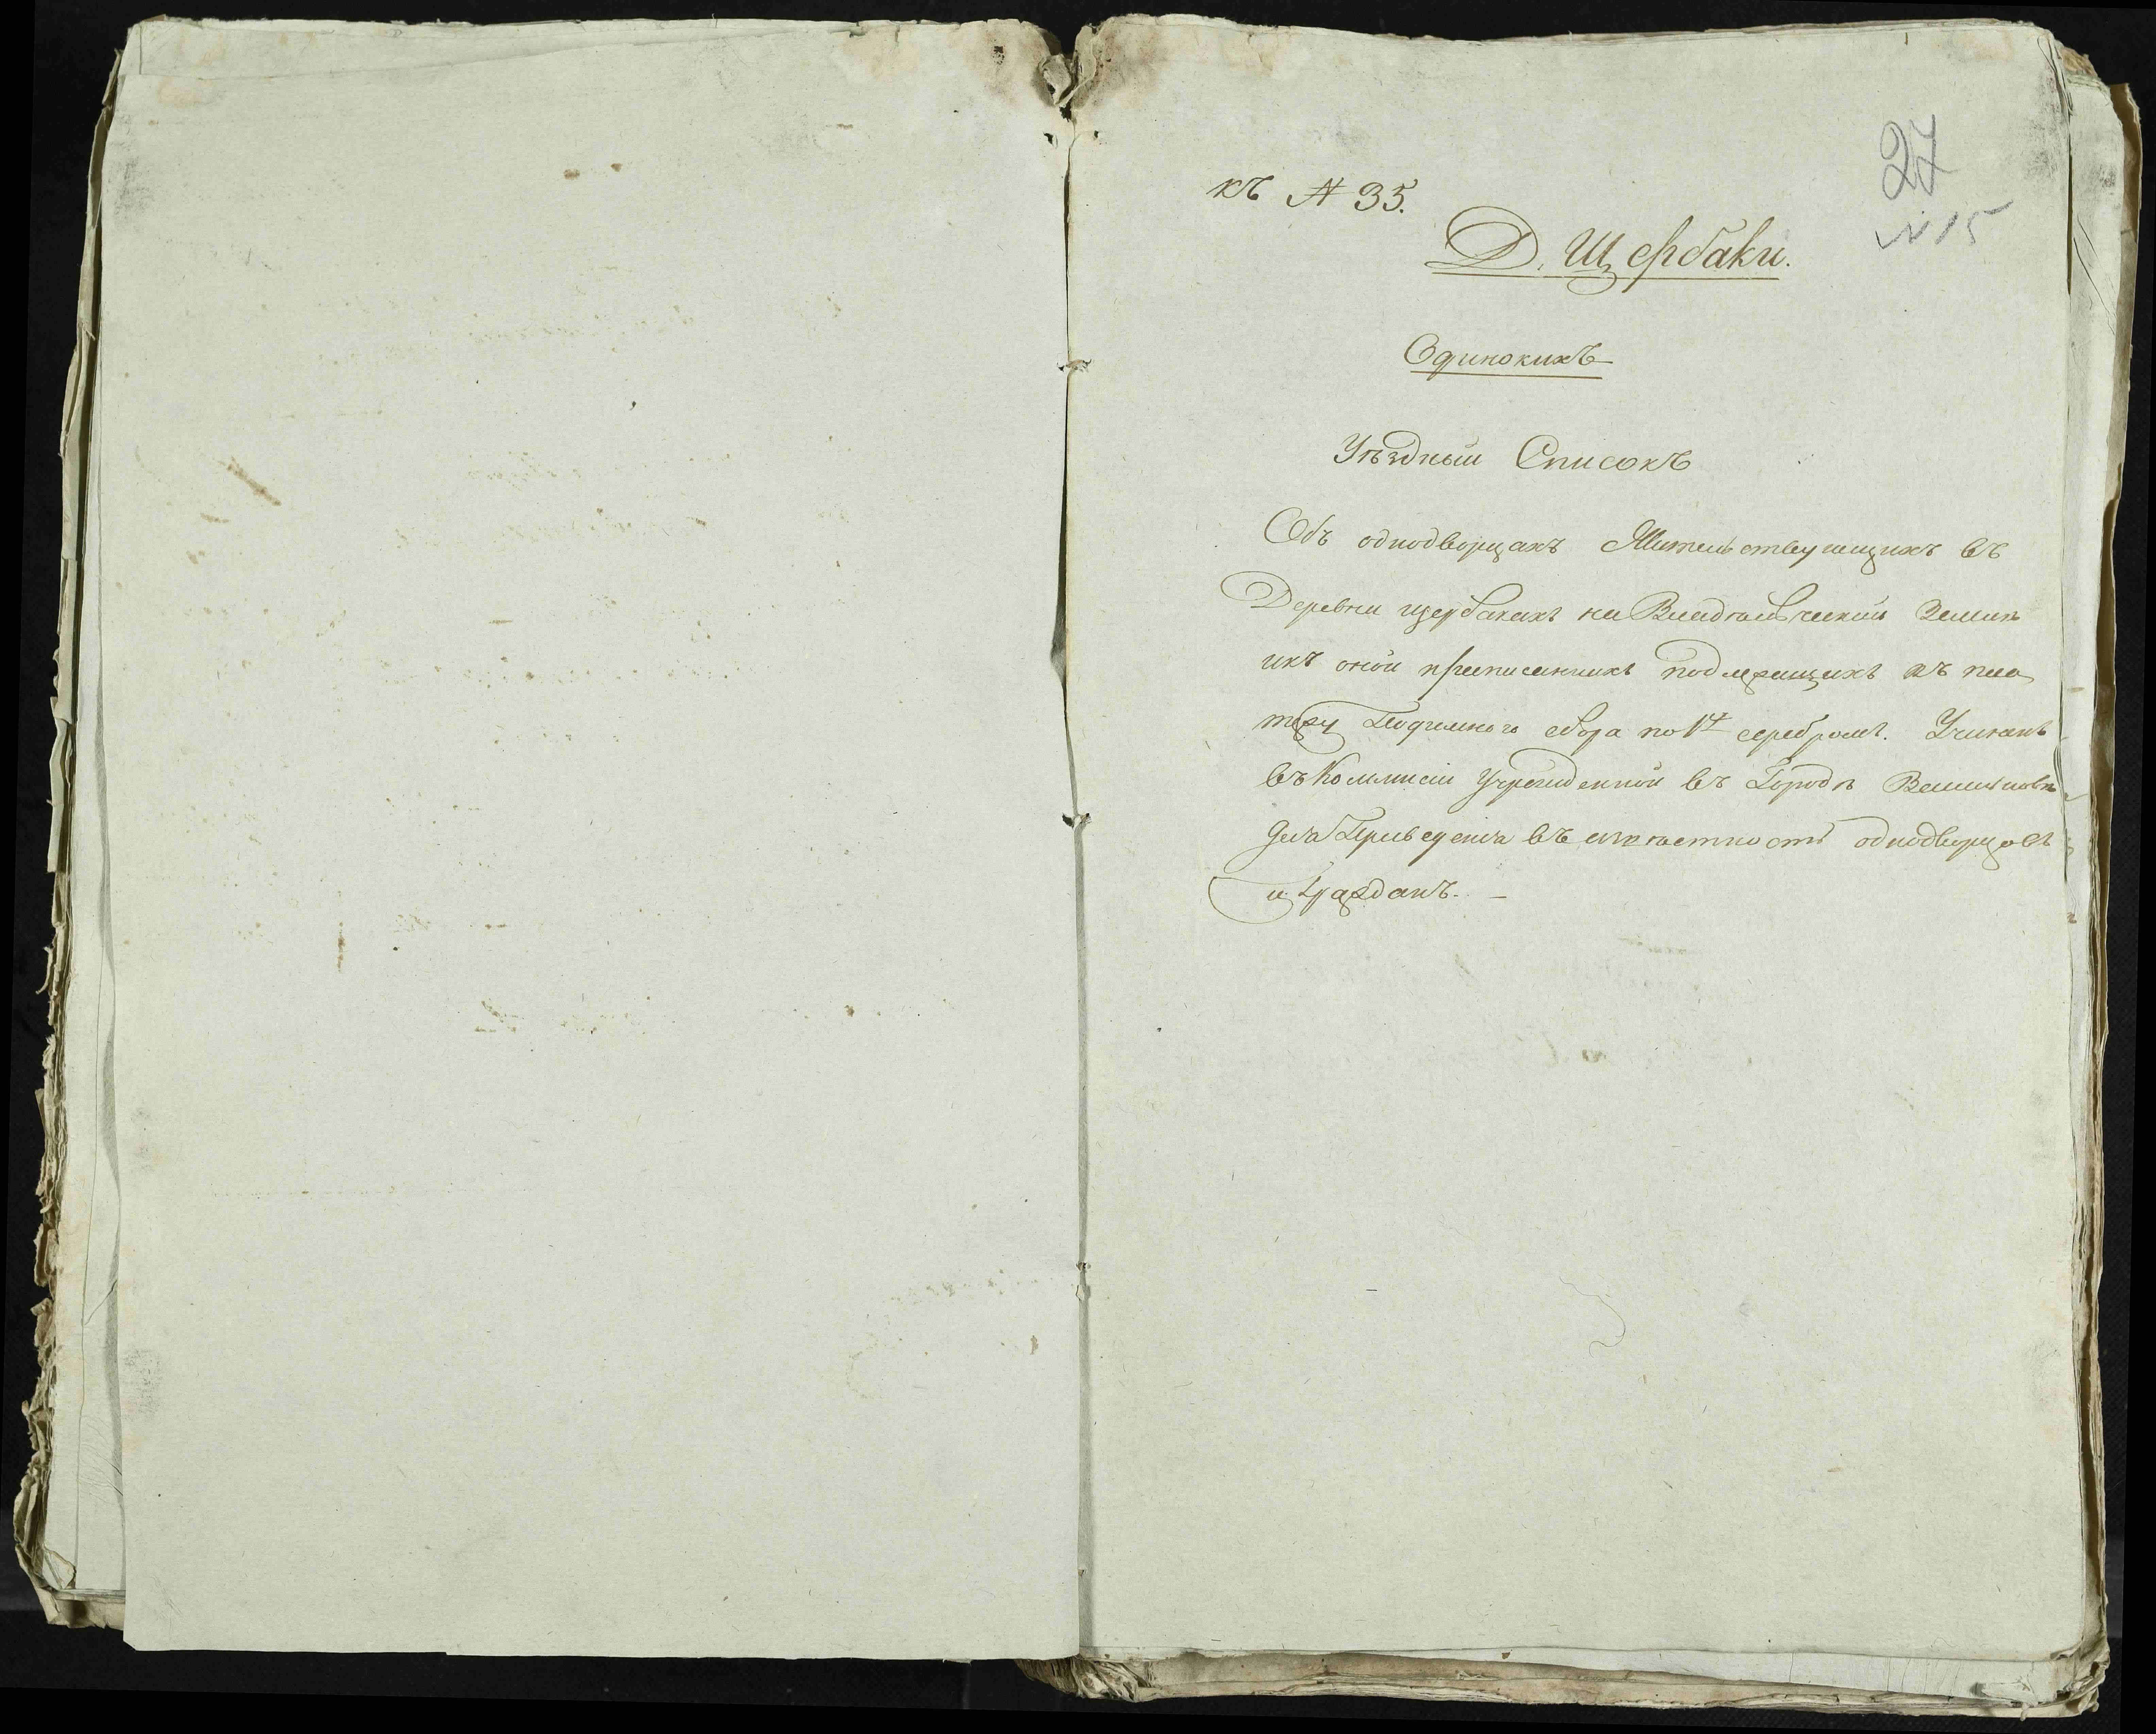 27
къ № 35.
№ 15
Д. Щербаки.
Одинокихъ
Уѣздный Списокъ
Объ однодворцахъ Жительствующихъ въ
Деревни щербакахъ на Владельческой Земли
икъ оной приписанныхъ подлежащихъ къ пла
тежу Подымнаго сбора по 1 серебромъ. Учиненъ
въ Коммисіи Учрежденной въ Городѣ
для Приведенія въ извѣстность однодворцовъ
и Гражданъ. —